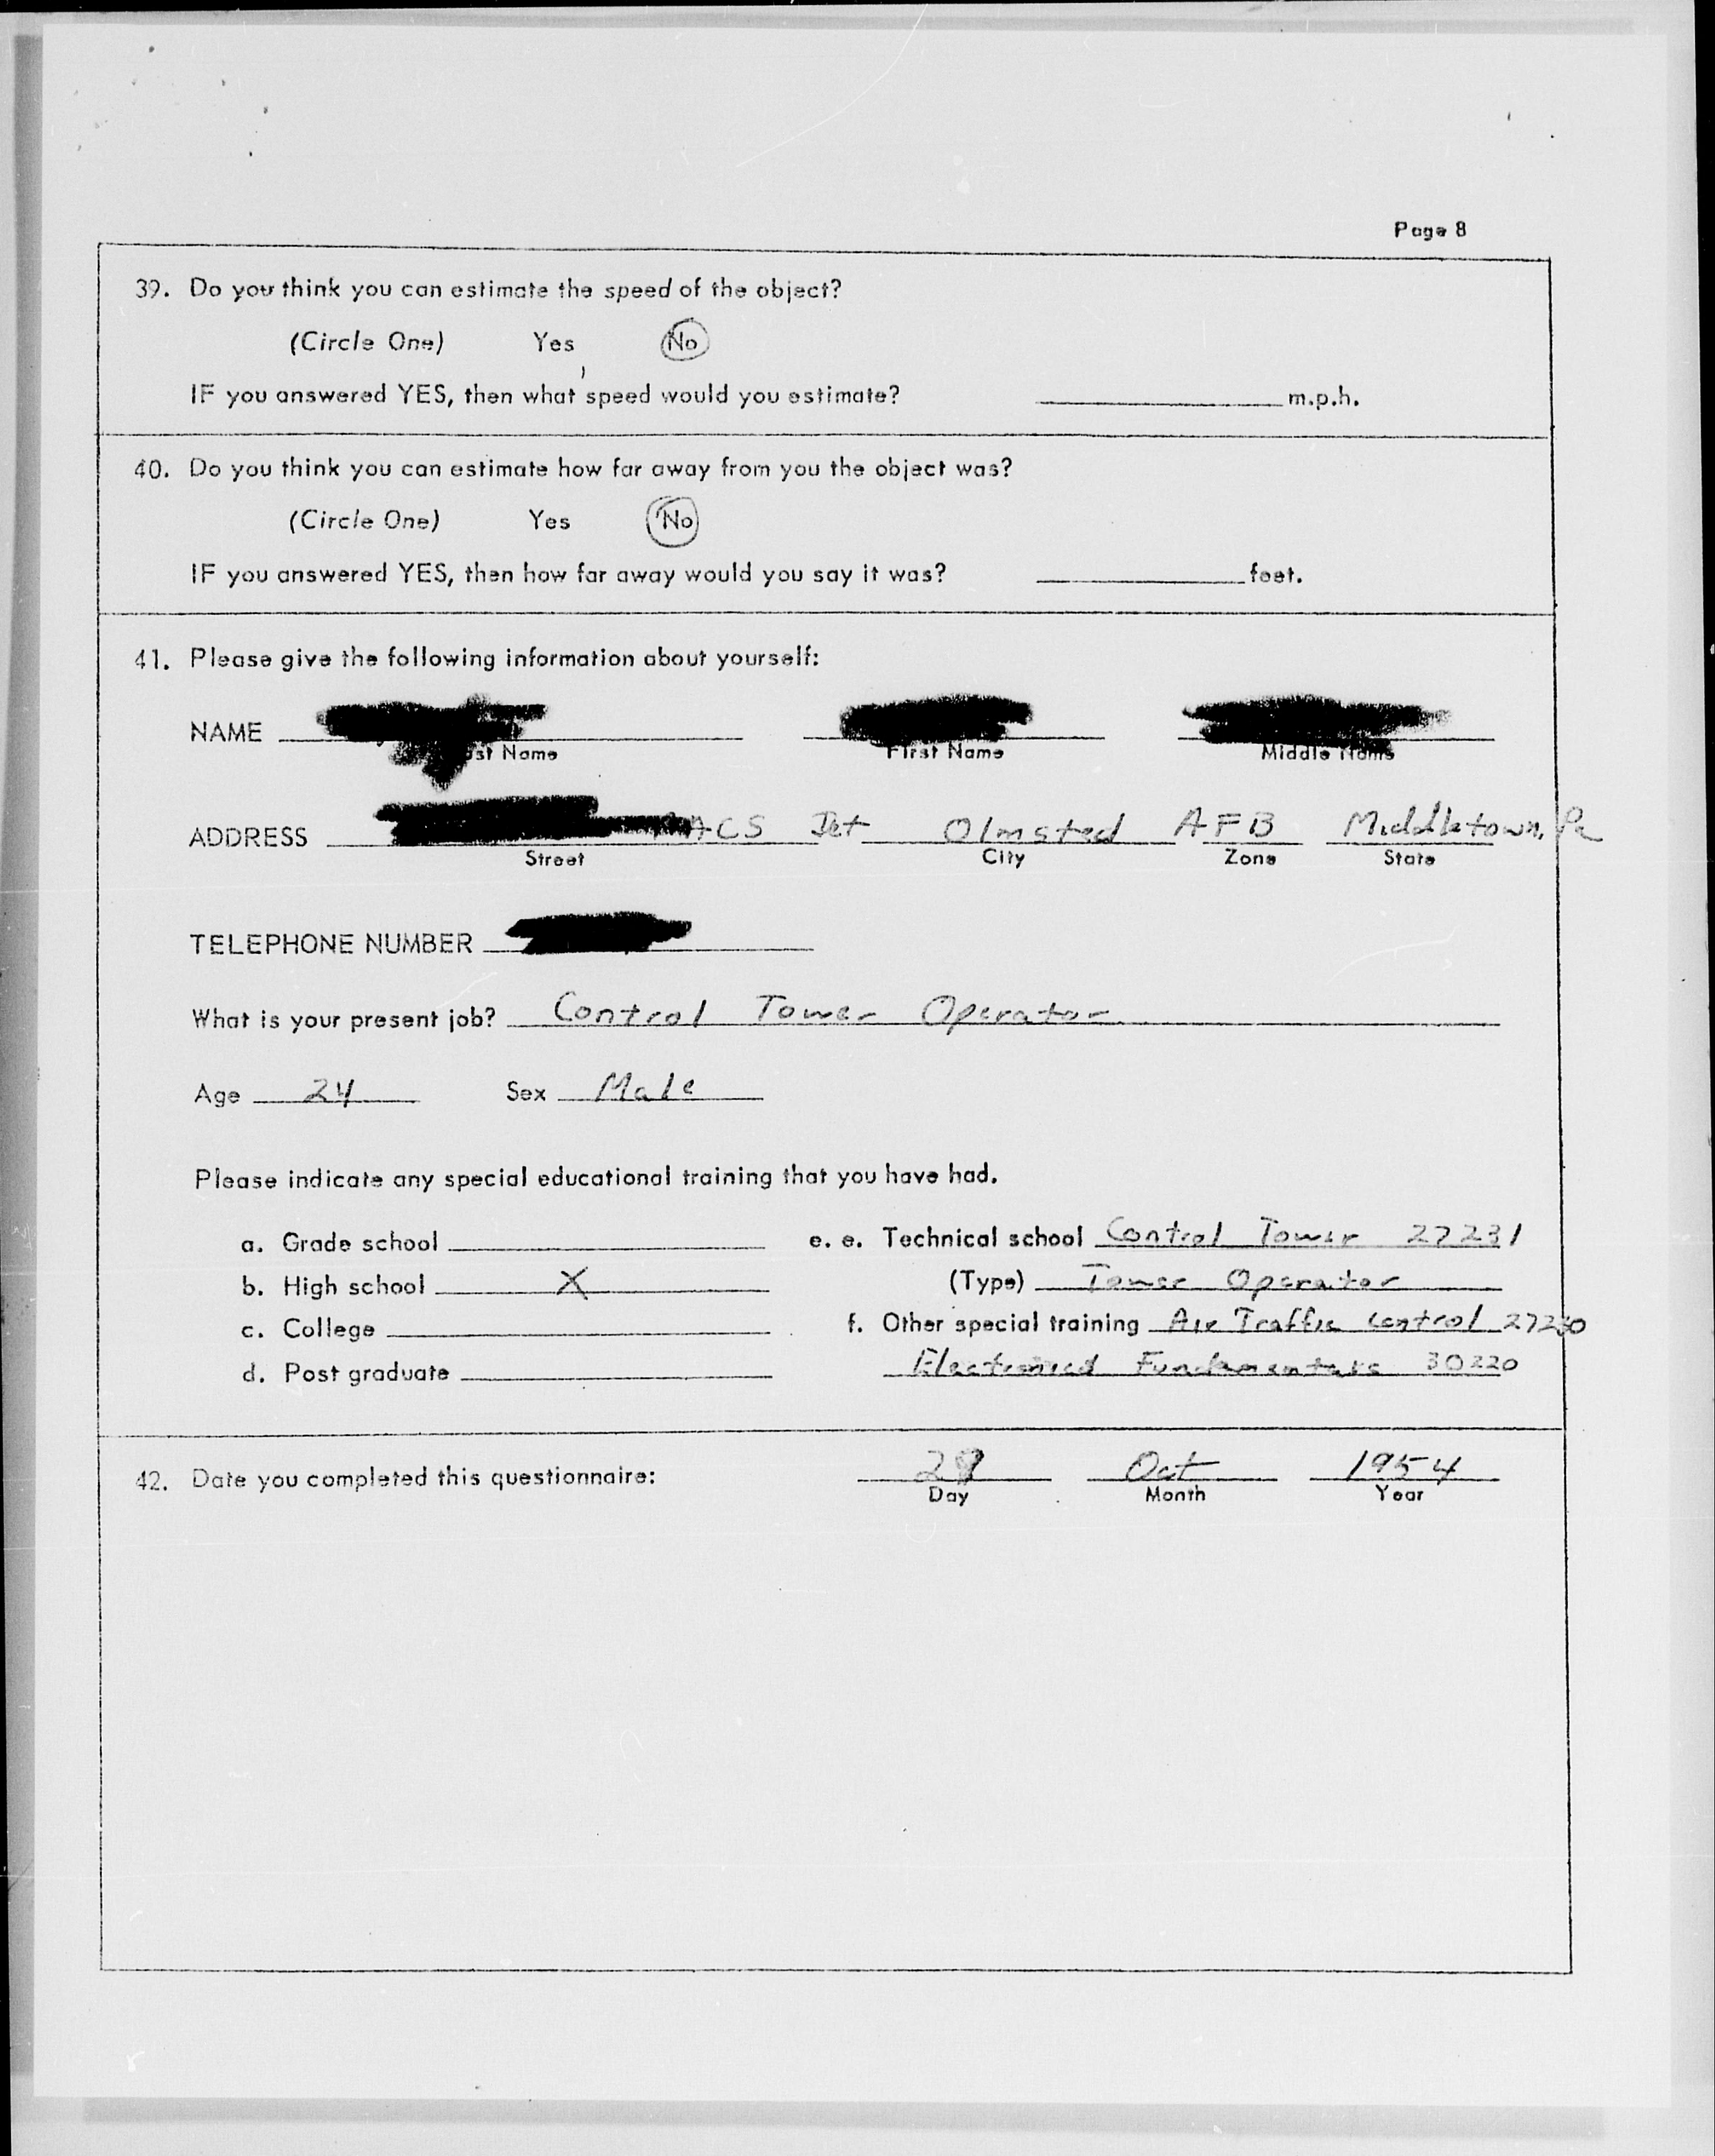 Page 8
39. Do you think you can estimate the speed of the object?
(Circle One) Yes No
IF you answered YES, then what speed would you estimate? m.p.h.
40. Do you think you can estimate how far away from you the object was?
(Circle One) Yes No
IF you answered YES, then how far away would you say it was? feet.
41. Please give the following information about yourself:
NAME
Name First Name Middle Name
ADDRESS ACS Det Olmsted AFB Middletown, Pa
Street City Zone State
TELEPHONE NUMBER
What is your present job? Control Tower Operator
Age 24 Sex Male
Please indicate any special educational training that you have had.
a. Grade school e. e. Technical school Control Tower 27231
b. High school X (Type) Tower Operator
c. College f. Other special training Air Traffic Control 27230
d. Post graduate Fundamentals 30220
42. Date you completed this questionnaire: Oct 1954
Day Month Year